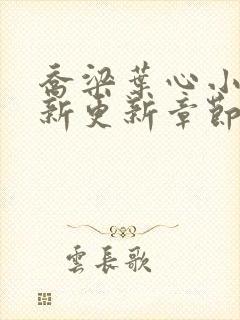 乔梁葉心小
新更新章節
雲長歌